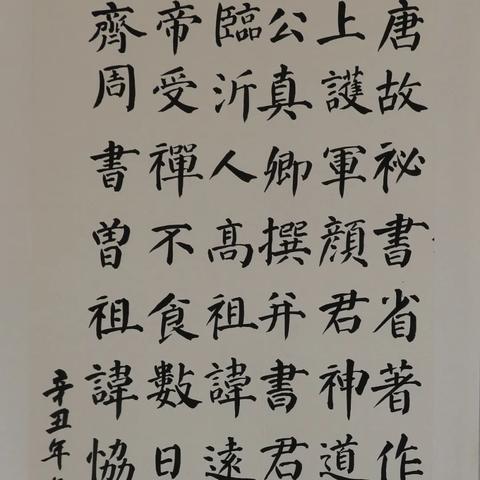 唐故祕書省著作
上護軍顏君神道
公真卿撰并書君
臨沂人高祖諱遠
帝受禪不食數日
齊周書曾祖諱協
辛丑年